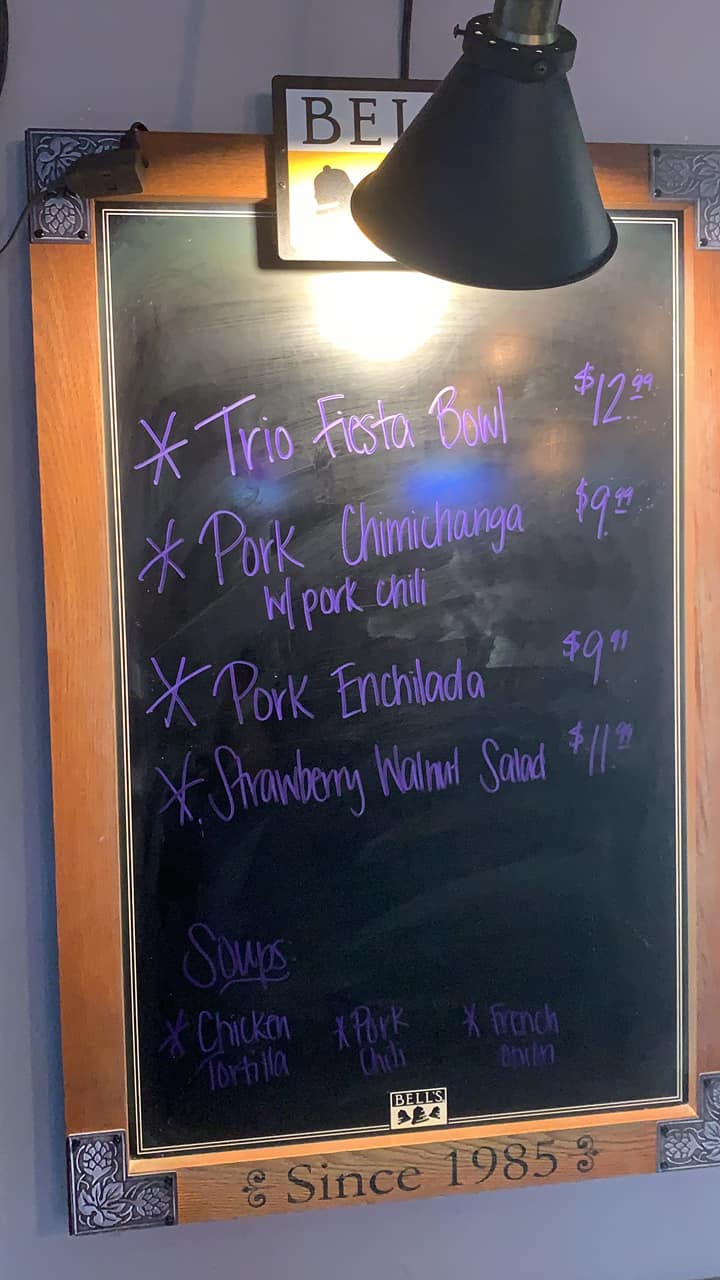 BEL
* Trio Fiesta Bowl $12.99
* Pork Chimichanga $9.99
w/ pork chili
* Pork Enchilada $9.99
* Strawberry Walnut Salad $11.99
Soups
* Chicken Tortilla
* Pork Chili
* French Onion
BELL'S
Since 1985